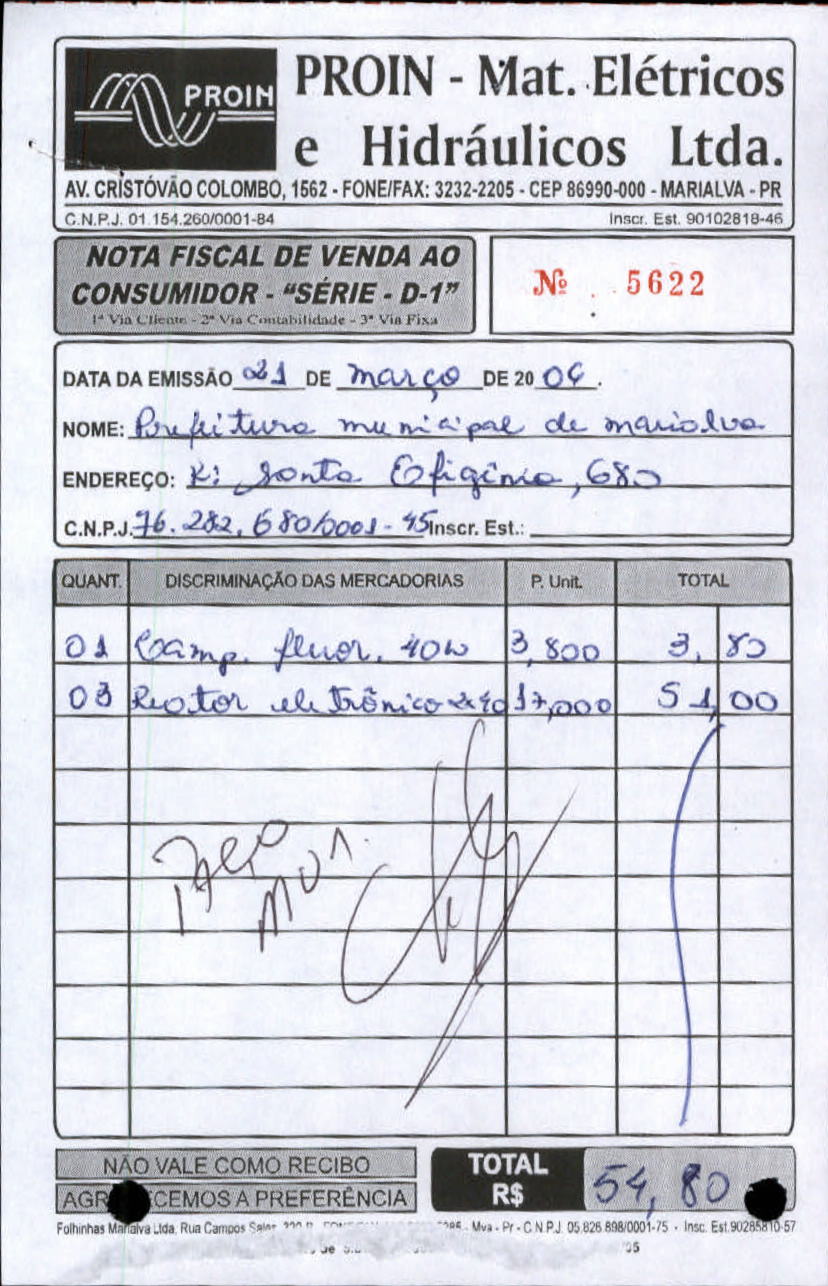 PROIN
PROIN - Mat. Elétricos
e Hidráulicos Ltda.
AV. CRISTÓVÃO COLOMBO, 1562 - FONE/FAX: 3232-2205 - CEP 86990-000 - MARIALVA - PR
C.N.P.J. 01.154.260/0001-84 Inscr. Est. 90102818-46
NOTA FISCAL DE VENDA AO
CONSUMIDOR - “SÉRIE - D-1”
1ª Via Cliente - 2ª Via Contabilidade - 3ª Via Fixa
Nº 5622
DATA DA EMISSÃO 21 DE março DE 20 06.
NOME: Prefeitura municipal de marialva
ENDEREÇO: R: Santa Efigênia, 680
C.N.P.J. 76.282.680/0001-45 Inscr. Est.:
QUANT. DISCRIMINAÇÃO DAS MERCADORIAS P. Unit. TOTAL
01 Lâmp. fluor. 40w 3,800 3,80
03 Reator eletrônico 2x40 17,000 51,00
PAÇO
MUN.
NÃO VALE COMO RECIBO
TOTAL
R$ 54,80
A PREFERÊNCIA
Folhinhas Marialva Ltda, Rua Campos - Mva - Pr - C.N.P.J. 05.826.898/0001-75 - Insc. Est.90285810-57